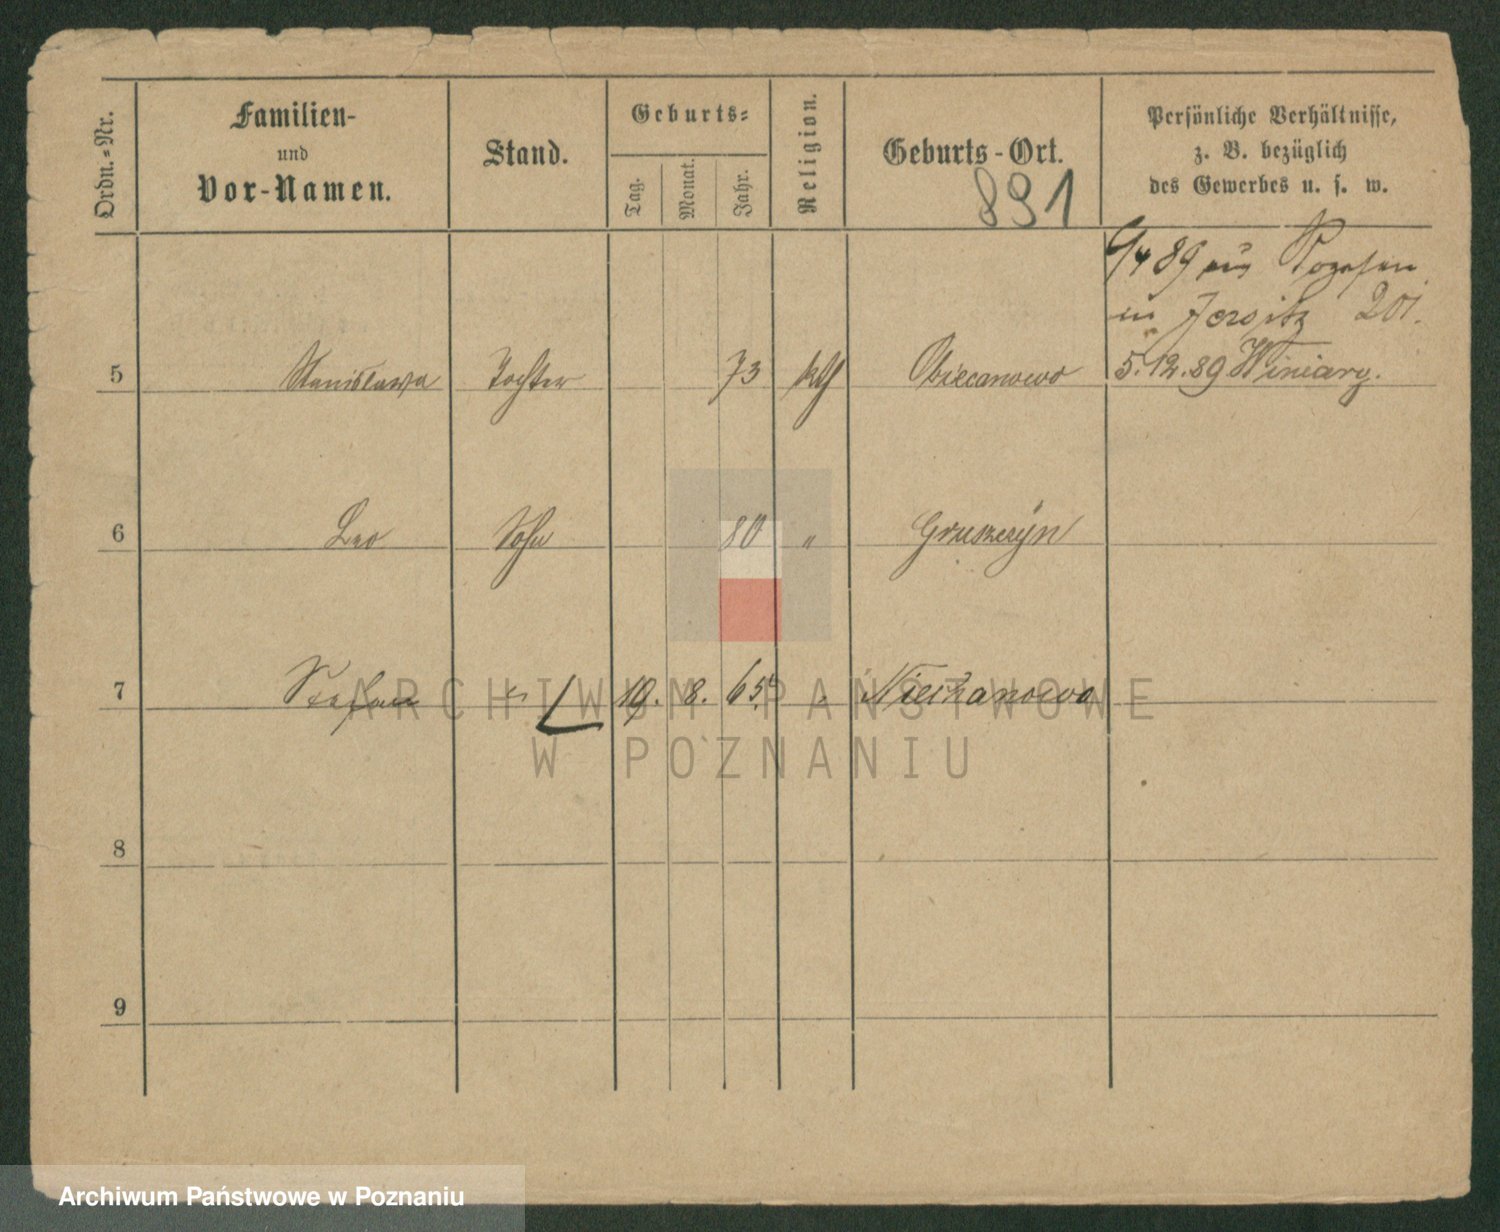 Ordn.-Nr.
Familien-
und
Vor-Namen.
Stand.
Geburts-
Tag.
Monat.
Jahr.
Religion.
Geburts-Ort.
891
Persönliche Verhältnisse,
z. B. bezüglich
des Gewerbes u. s. w.
89 aus
in Jersitz 201.
5 Stanislawa Tochter 73 kth Obiecanowo 5.12.89 Winiary.
6 Leo Sohn 80 " Gruszczyn
7 Stefan " 19. 8. 65. " Niechanowo
ARCHIWUM PAŃSTWOWE
W POZNANIU
8
9
Archiwum Państwowe w Poznaniu